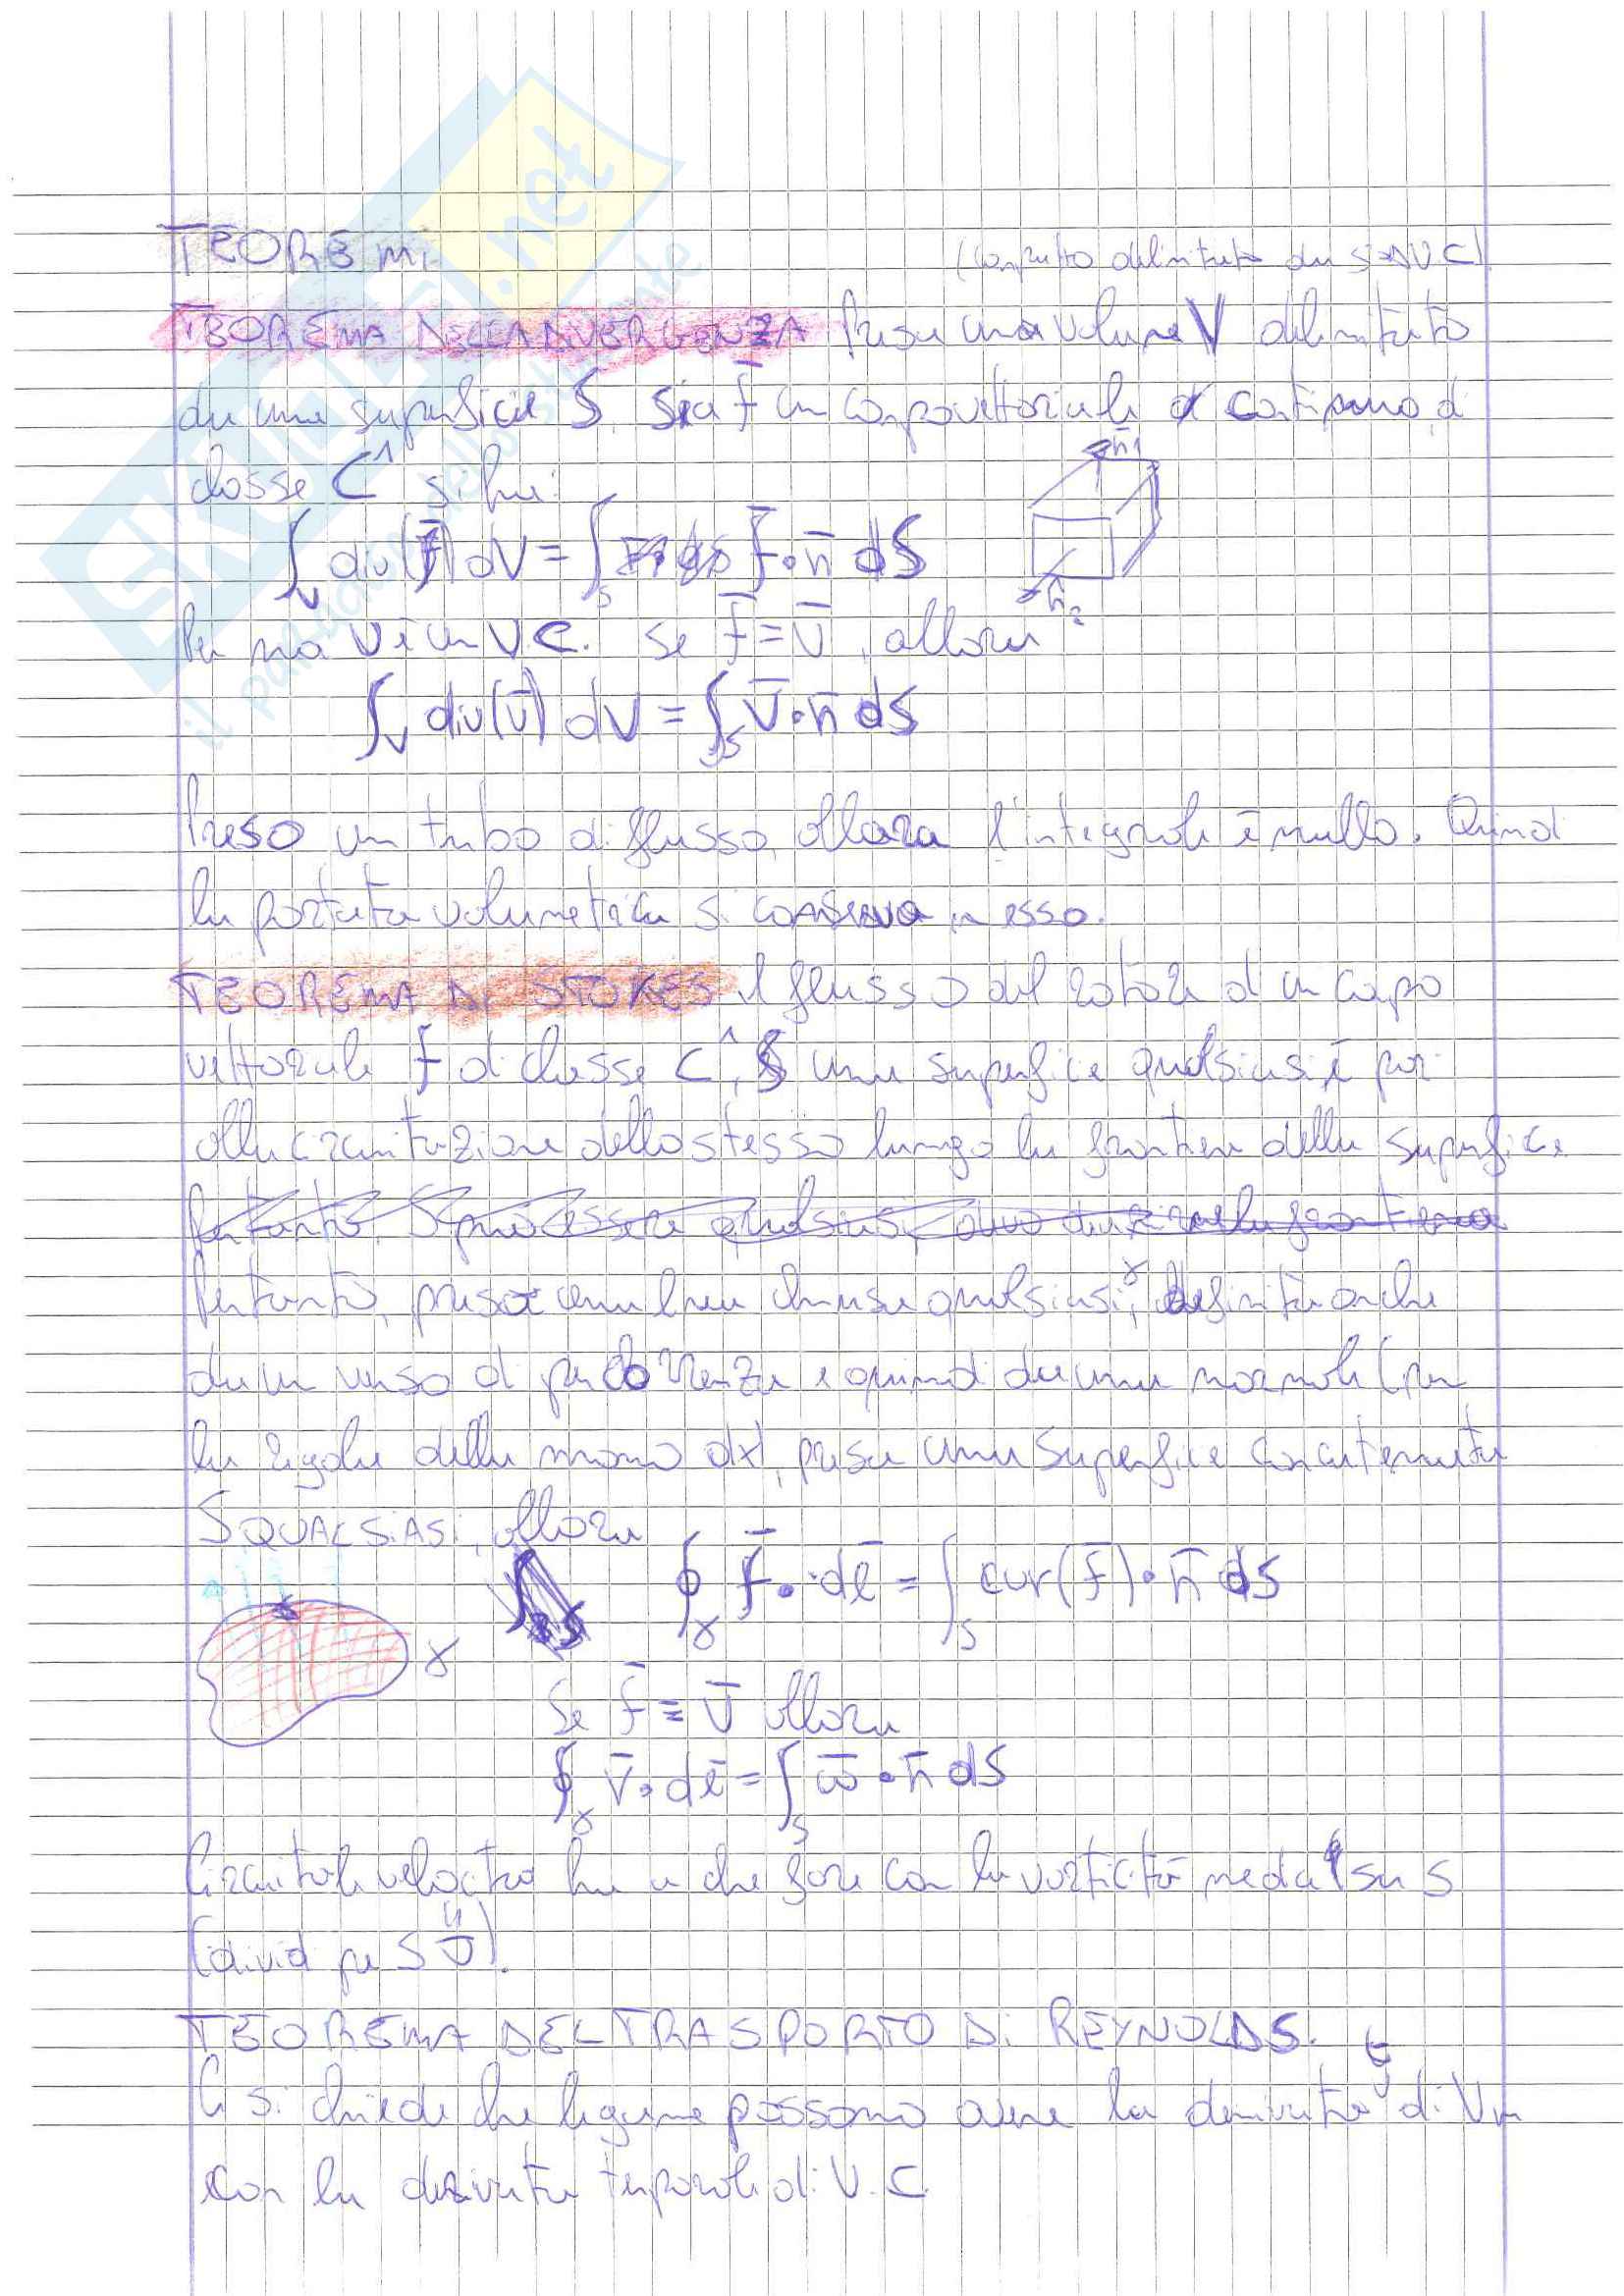 TEOREMI
(concetto delimitato da S è V C)
TEOREMA DELLA DIVERGENZA Preso una volume V delimitato
da una superficie S, sia f̄ un campo vettoriale continuo, di
classe C¹ si ha:
n̄₁
∫_V div(f̄) dV = ∫_S f̄ · n̄ dS
n̄₂
Per noi V è un V.C. se f̄ = v̄, allora
∫_V div(v̄) dV = ∫_S v̄ · n̄ dS
Preso un tubo di flusso, allora l'integrale è nullo. Quindi
la portata volumetrica si conserva in esso.
TEOREMA DI STOKES il flusso del rotore di un campo
vettoriale f di classe C¹, S una superficie qualsiasi è pari
alla circuitazione dello stesso lungo la frontiera della superficie
Pertanto S può essere qualsiasi,
Pertanto, presa una linea chiusa qualsiasi γ, definita anche
da un verso di percorrenza e quindi da una normale (per
la regola della mano dx), presa una superficie concatenata
S QUALSIASI, allora
∮_γ f̄ · dl̄ = ∫_S cur(f̄) · n̄ dS
γ
Se f̄ ≡ v̄ allora
∮_γ v̄ · dl̄ = ∫_S ω̄ · n̄ dS
Circuitale velocità ha a che fare con la vorticità media su S
(dividi per S
TEOREMA DEL TRASPORTO DI REYNOLDS.
Ci si chiede che legame possono avere la derivata di Vm
con la derivata temporale di V.C.
SKUOLA.net
il paradiso dello studente